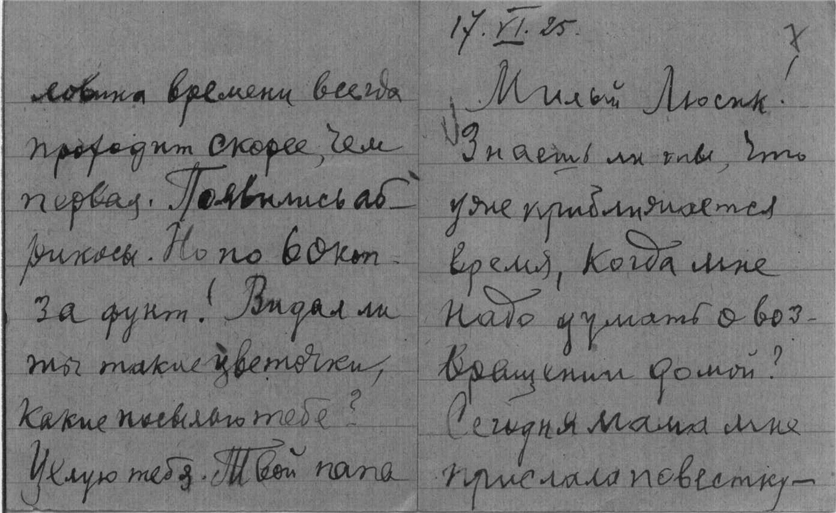 ловина времени всегда
проходит скорее, чем
первая. Появились аб-
рикосы. Но по 60 коп.
за фунт! Видал ли
ты такие цветочки,
какие посылаю тебе?
Целую тебя. Твой папа
17.VI.25.
Милый Люсик!
Знаешь ли ты, что
уже приближается
время, когда мне
надо думать о воз-
вращении домой?
Сегодня мама мне
прислала повестку—